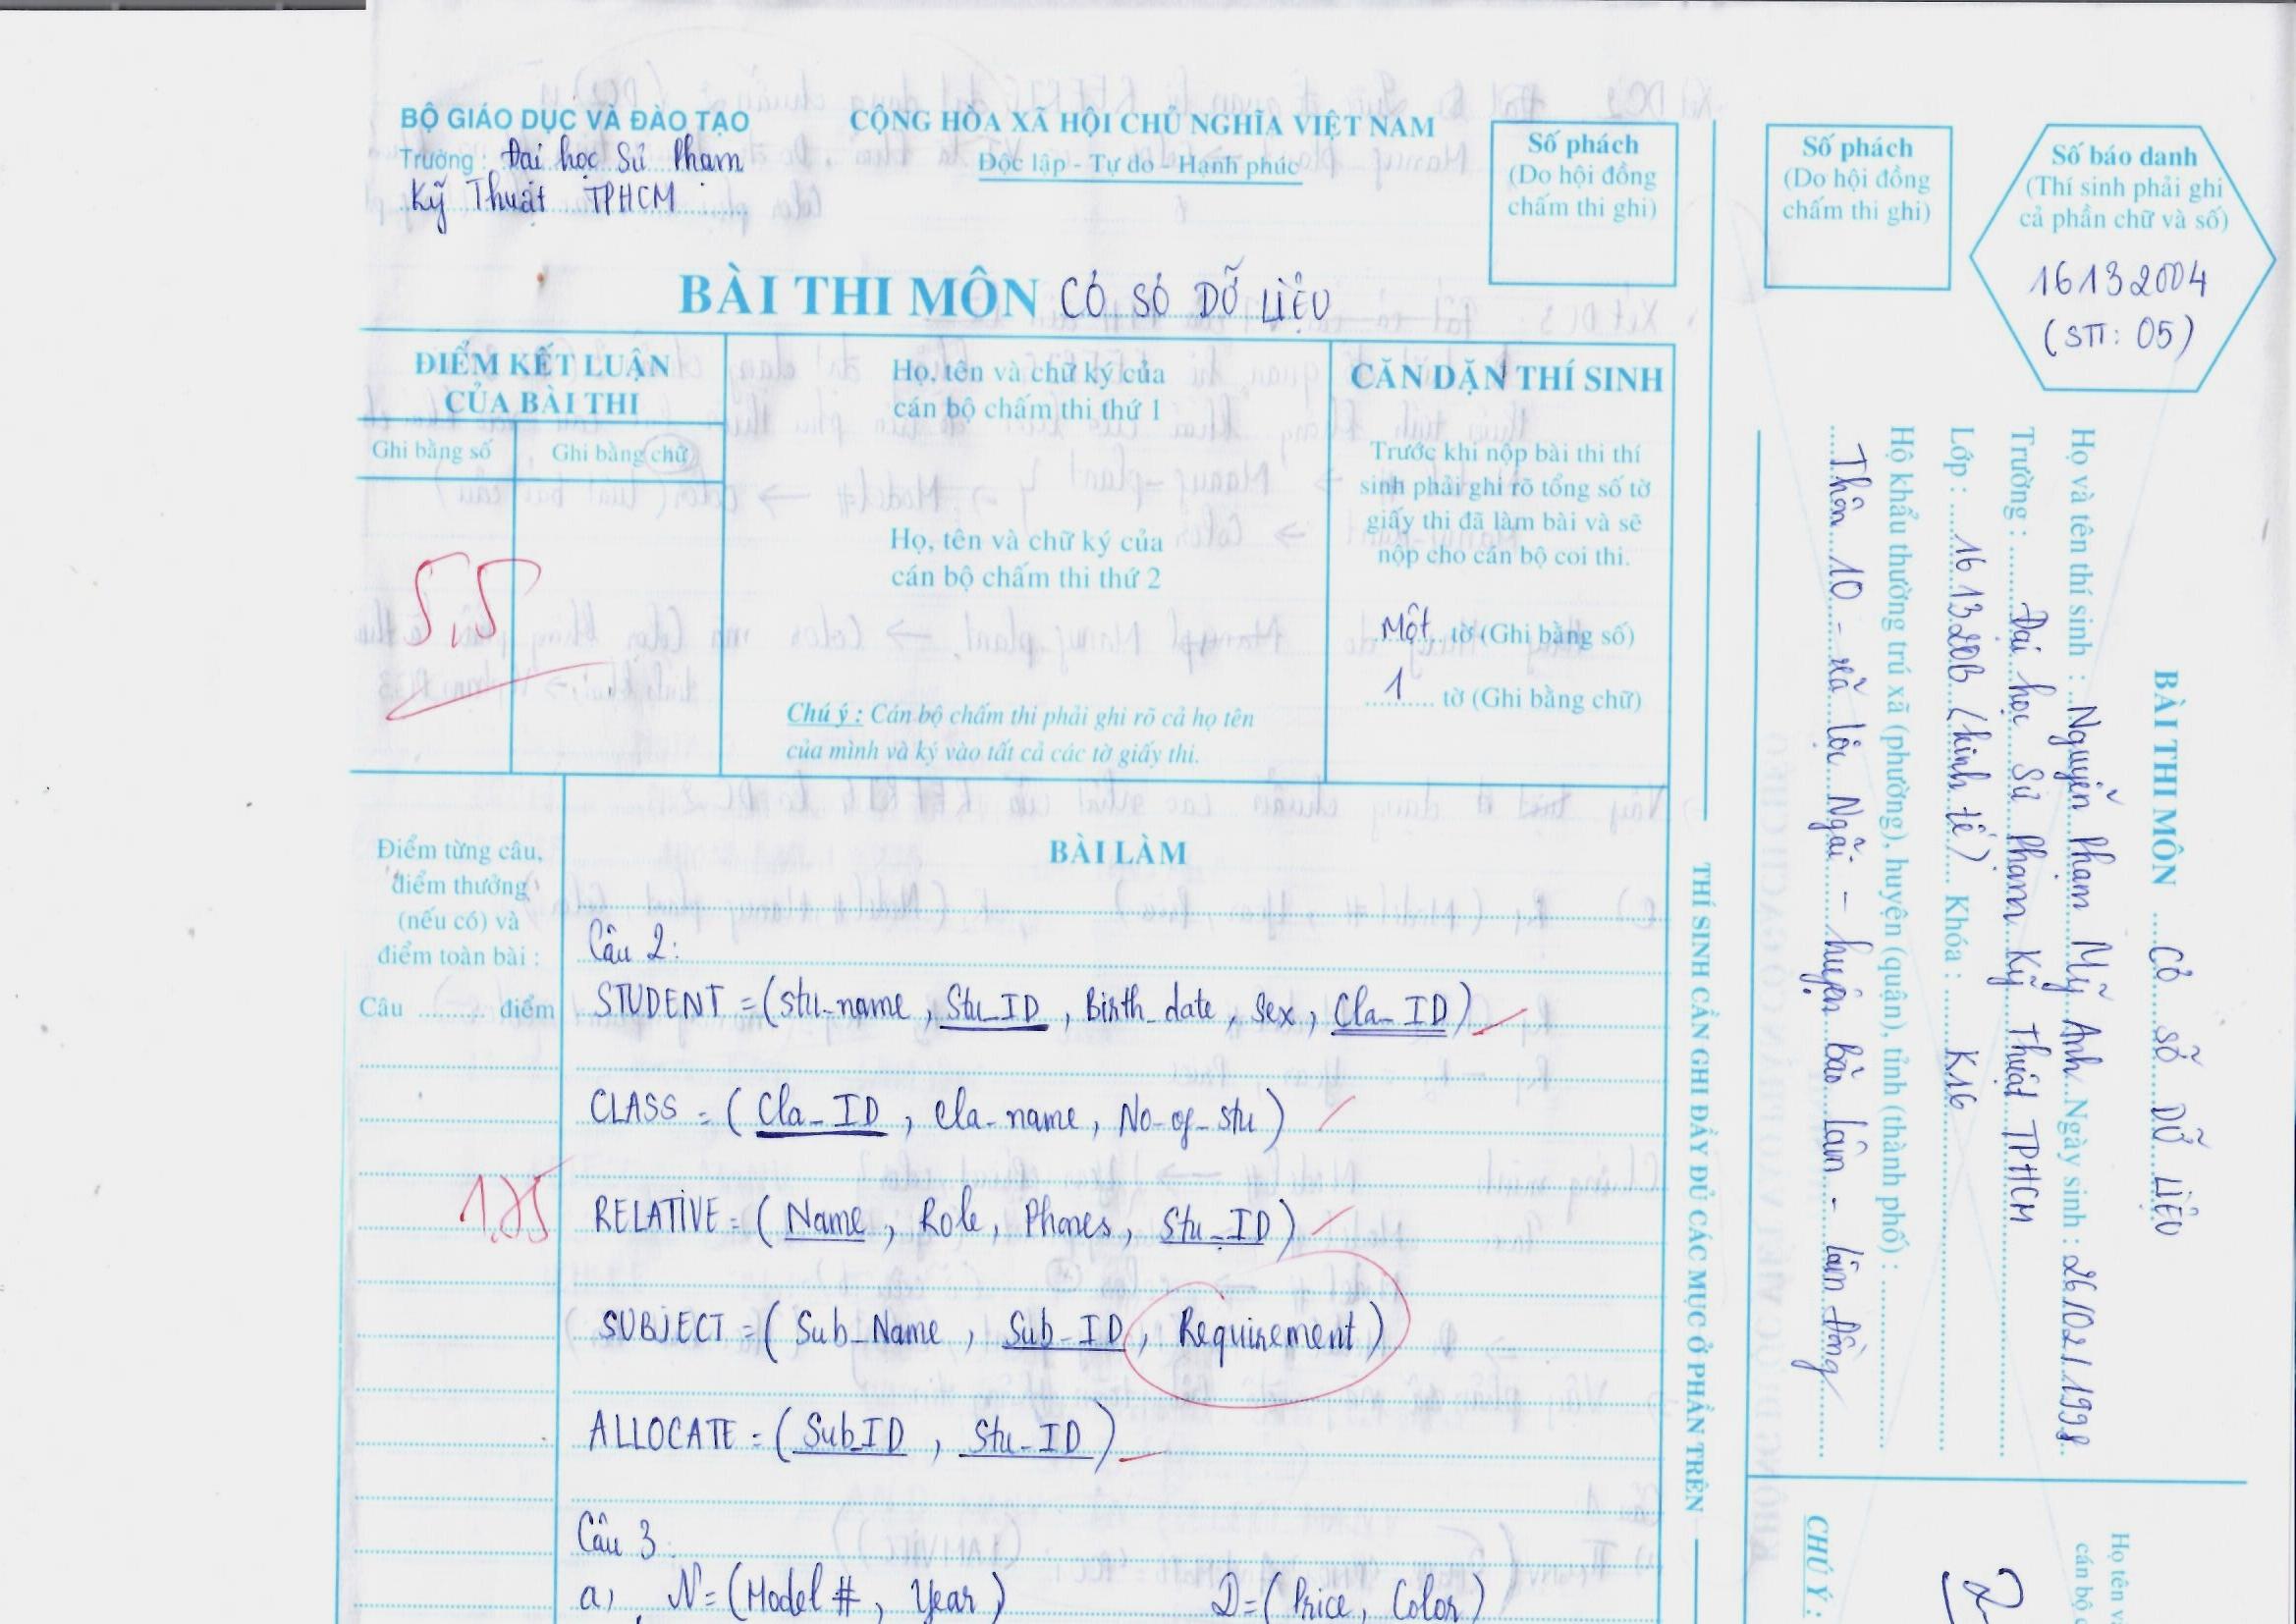 BỘ GIÁO DỤC VÀ ĐÀO TẠO
Trường : Đại học Sư Phạm
Kỹ Thuật TPHCM
CỘNG HÒA XÃ HỘI CHỦ NGHĨA VIỆT NAM
Độc lập - Tự do - Hạnh phúc
Số phách
(Do hội đồng
chấm thi ghi)
BÀI THI MÔN CƠ SỞ DỮ LIỆU
ĐIỂM KẾT LUẬN
CỦA BÀI THI
Ghi bằng số
Ghi bằng chữ
5,5
Họ, tên và chữ ký của
cán bộ chấm thi thứ 1
Họ, tên và chữ ký của
cán bộ chấm thi thứ 2
Chú ý : Cán bộ chấm thi phải ghi rõ cả họ tên
của mình và ký vào tất cả các tờ giấy thi.
CĂN DẶN THÍ SINH
Trước khi nộp bài thi thí
sinh phải ghi rõ tổng số tờ
giấy thi đã làm bài và sẽ
nộp cho cán bộ coi thi.
Một tờ (Ghi bằng số)
1 tờ (Ghi bằng chữ)
Điểm từng câu,
điểm thưởng
(nếu có) và
điểm toàn bài :
Câu .......... điểm
BÀI LÀM
Câu 2:
STUDENT = (Stu_name, Stu_ID, Birth_date, Sex, Cla_ID)
CLASS = (Cla_ID, Cla_name, No_of_stu)
1.75
RELATIVE = (Name, Role, Phones, Stu_ID)
SUBJECT = (Sub_Name, Sub_ID, Requirement)
ALLOCATE = (Sub_ID, Stu_ID)
Câu 3
a) N = (Model #, Year) D = (Price, Color)
THÍ SINH CẦN GHI ĐẦY ĐỦ CÁC MỤC Ở PHẦN TRÊN
Số phách
(Do hội đồng
chấm thi ghi)
Số báo danh
(Thí sinh phải ghi
cả phần chữ và số)
16132004
(STT: 05)
BÀI THI MÔN CƠ SỞ DỮ LIỆU
Họ và tên thí sinh : Nguyễn Phạm Mỹ Anh Ngày sinh : 26/02/1998
Trường : Đại học Sư Phạm Kỹ Thuật TPHCM
Lớp : 161320B (kinh tế) Khóa : K16
Hộ khẩu thường trú xã (phường), huyện (quận), tỉnh (thành phố) :
Thôn 10 - xã Lộc Ngãi - huyện Bảo Lâm - Lâm Đồng
Họ tên
cán bộ
CHÚ Ý :